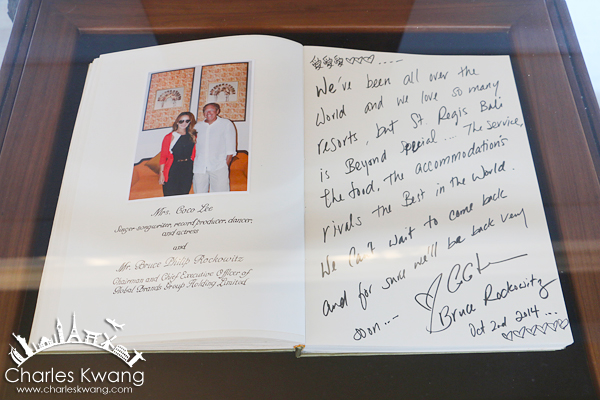 Mrs. Coco Lee
Singer-songwriter, record producer, dancer,
and actress
and
Mr. Bruce Philip Rockowitz
Chairman and Chief Executive Officer of
Global Brands Group Holding Limited
We've been all over the
World and we love so many
resorts, but St. Regis Bali
is Beyond Special... The service,
the food, The accommodations
rivals the Best in the World.
We can't wait to come back
and for sure we'll be back very
soon...
Bruce Rockowitz
Oct 2nd 2014...
Charles Kwang
www.charleskwang.com